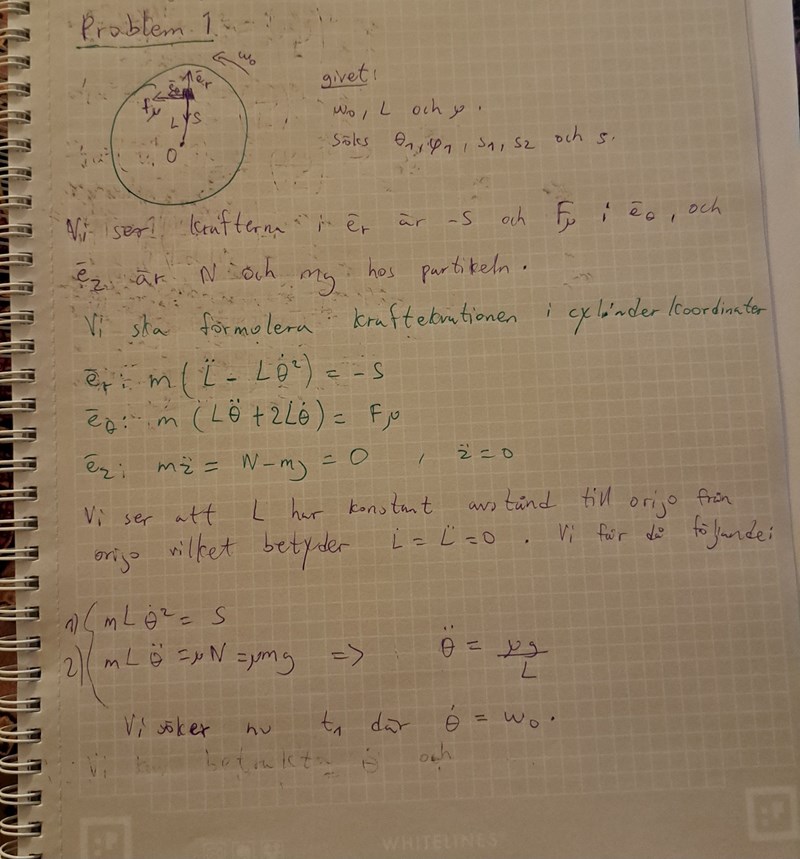 Problem 1
ω₀
ē_r
ē_θ
Fμ
L
S
O
givet:
ω₀, L och μ.
Söks θ₁, φ₁, s₁, s₂ och s.
Vi ser krafterna i ē_r är -S och Fμ i ē_θ, och
ē_z är N och mg hos partikeln.
Vi ska formulera kraftekvationen i cylinderkoordinater
ē_r: m(L̈ - Lθ̇²) = -S
ē_θ: m(Lθ̈ + 2L̇θ̇) = Fμ
ē_z: mz̈ = N-mg = 0 , z̈ = 0
Vi ser att L har konstant avstånd till origo från
origo vilket betyder L̇ = L̈ = 0 . Vi får då följande:
1) mLθ̇² = S
2) mLθ̈ = μN = μmg => θ̈ = μg/L
Vi söker nu t₁ där θ̇ = ω₀.
Vi betrakta θ och
WHITELINES